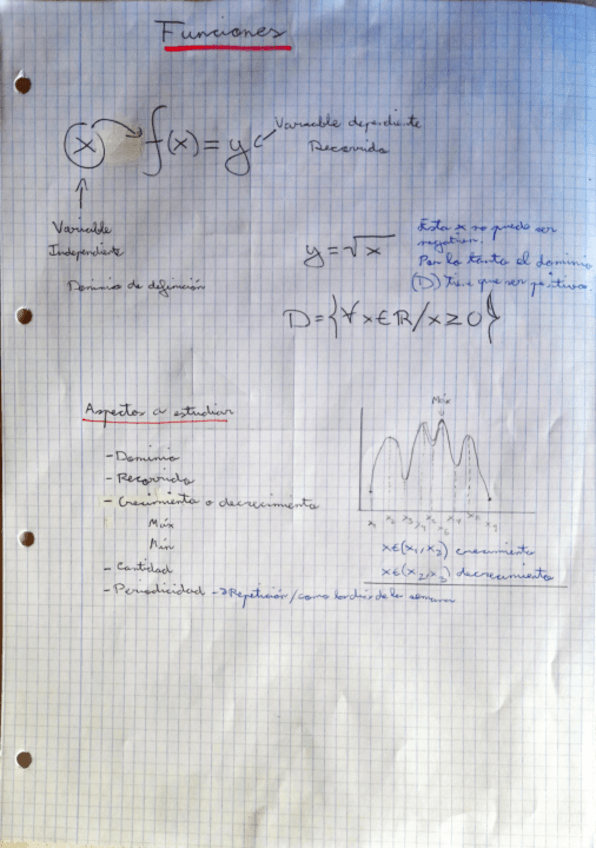 Funciones
x f(x) = y
Variable dependiente
Recorrido
Variable
Independiente
Dominio de definición
y = √x
Esta x no puede ser
negativa.
Por lo tanto el dominio
(D) tiene que ser positivo.
D = {∀ x ∈ ℝ / x ≥ 0}
Aspectos a estudiar
- Dominio
- Recorrido
- Crecimiento o decrecimiento
Máx
Mín
- Cantidad
- Periodicidad → Repetición / como los días de la semana
Máx
x₁ x₂ x₃ x₄
x∈(x₁, x₂) crecimiento
x∈(x₂, x₃) decrecimiento